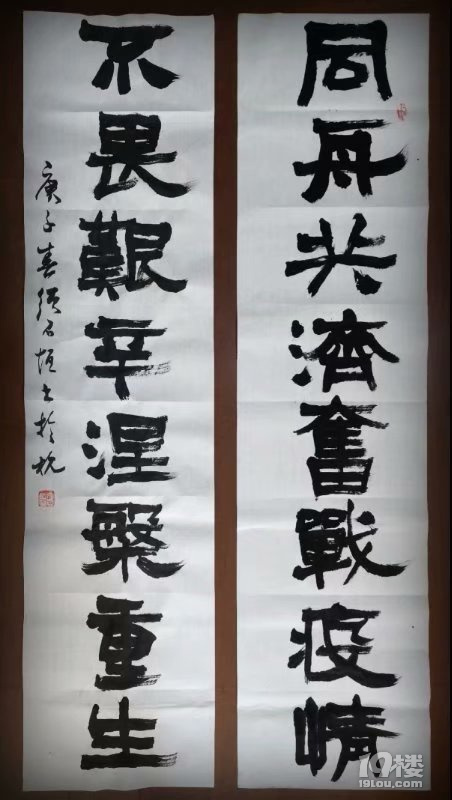 同舟共濟奮戰疫情
不畏艱辛涅槃重生
庚子春 石恒書於杭
19楼
19lou.com